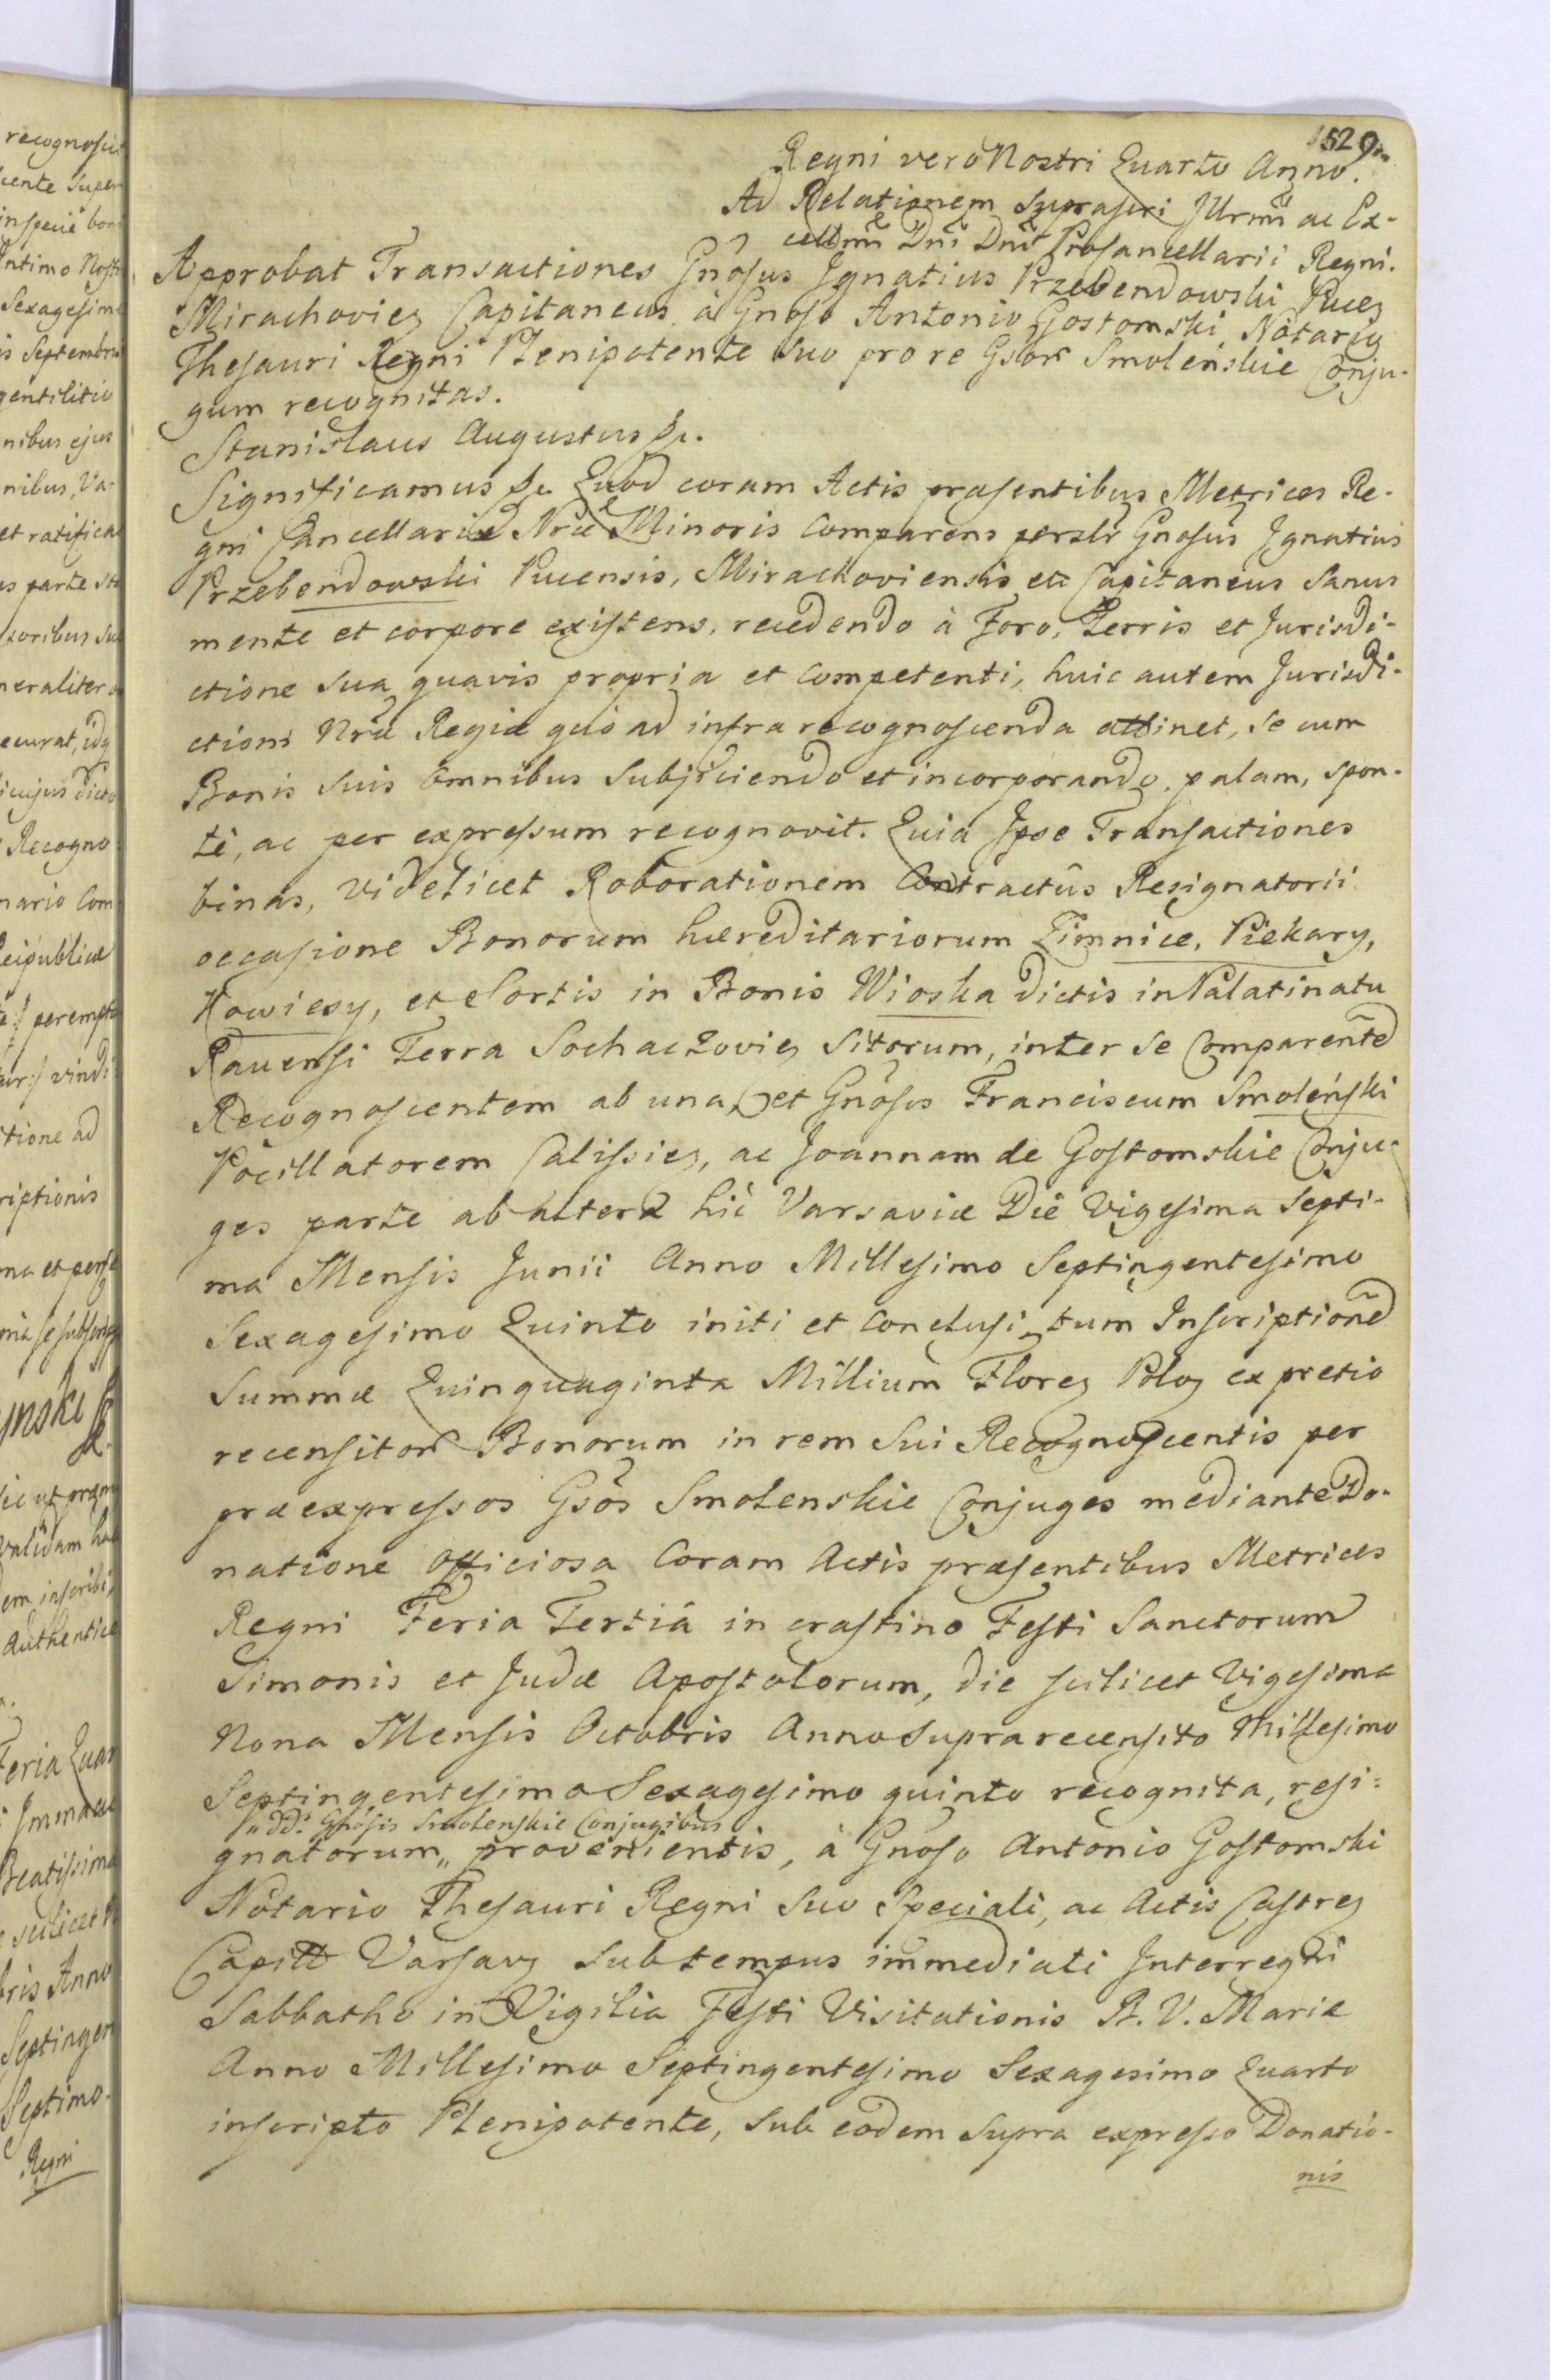 1520
Regni vero Nostri Quarto Anno.
Ad Relationem Suprascri Jllrmi ac Ex-
cellmi Dni Dni Procancellarii Regni.
Approbat Transactiones Gnosus Jgnatius Przebendowski Pucen
Mirachovien Capitaneus à Gnoso Antonio Gostomski Notario
Thesauri Regni Plenipotente suo pro re Gsorum Smolenskie Conju-
gum recognitas.
Stanislaus Augustus &c.
Significamus &c. Quod coram Actis præsentibus Metrices Re-
gni Cancellariæ Nræ Minoris Comparens persltr Gnosus Jgnatius
Przebendowski Pucensis, Mirachoviensis etc Capitaneus Sanus
mente et corpore existens, recedendo à Foro, Terris et Jurisdi-
ctione sua quavis propria et Competenti, huic autem Jurisdi-
ctioni Nræ Regiæ quò ad infra recognoscenda attinet, se cum
Bonis suis omnibus Subjiciendo et incorporando, palam, spon-
te, ac per expressum recognovit. Quia Jpse Transactiones
binas, videlicet Roborationem Contractûs Resignatorii
occasione Bonorum hæreditariorum Zimnice, Piekary,
Kowiesy, et Sortis in Bonis Wioska dictis in Palatinatu
Ravensi Terra Sochaczovien sitorum, inter se Comparentẽ
Recognoscentem ab una, et Gnosos Franciscum Smoleński
Pocillatorem Calissien, ac Joannam de Gostomskie Conju-
ges parte ab altera hic Varsaviæ Die Vigesima Septi-
ma Mensis Junii Anno Millesimo Septingentesimo
Sexagesimo Quinto initi et Conclusi, tum Inscriptionẽ
Summæ Quinquaginta Millium Floren Polon ex pretio
recensitorum Bonorum in rem sui Recognoscentis per
præexpressos Gsos Smolenskie Conjuges mediante Do-
natione Officiosa Coram Actis præsentibus Metrices
Regni Feria Tertiâ in crastino Festi Sanctorum
Simonis et Judæ Apostolorum, die scilicet Vigesima
Nona Mensis Octobris Anno suprarecensito Millesimo
Septingentesimo Sexagesimo quinto recognita, resi-
„dd: Gnosis Smolenskie Conjugibus
gnatorum „ provenientis, à Gnoso Antonio Gostomski
Notario Thesauri Regni suo Speciali, ac Actis Castren
Capitt Varsavn sub tempus immediati Interregni
Sabbatho in Vigilia Festi Visitationis B. V. Mariæ
Anno Millesimo Septingentesimo Sexagesimo Quarto
inscripto Plenipotente, sub eodem supra expresso Donatio-
nis